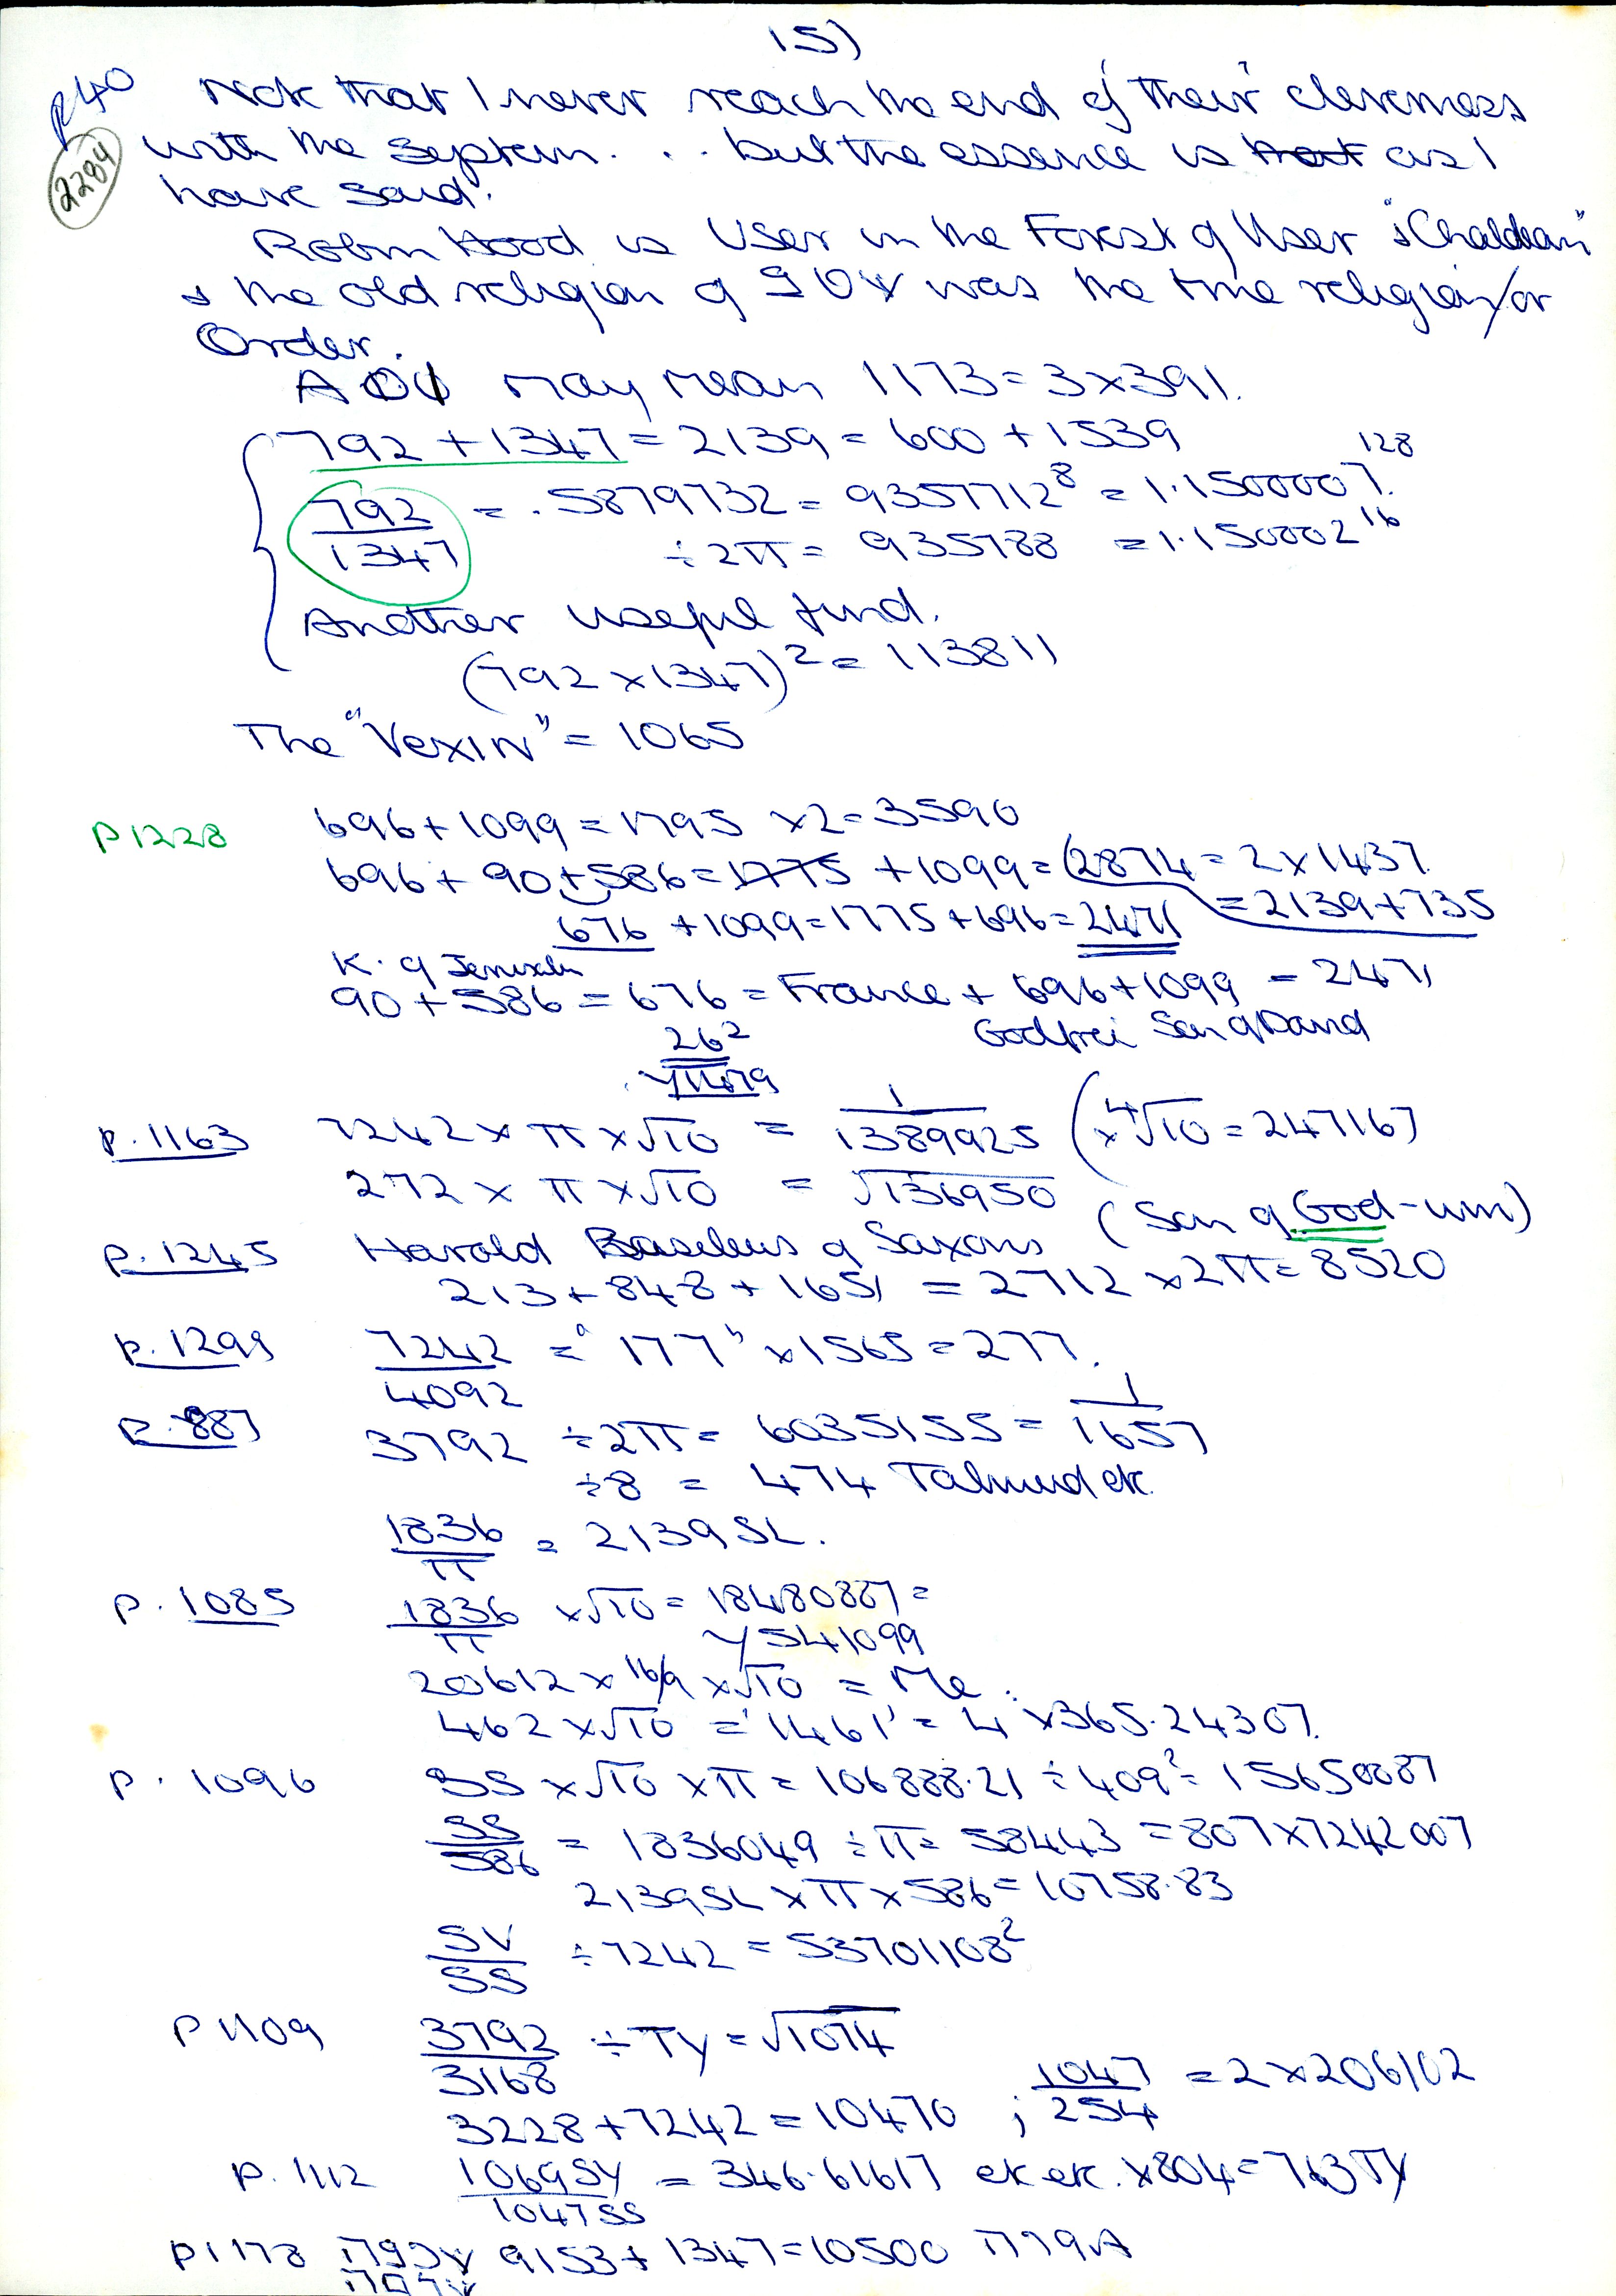 15)
p40 Note that I never reach the end of 'their' cleverness
2284 with the system. . . but the essence is that as I
have said.
Robin Hood is User in the Forest of User "Chaldean"
& the old religion of was the true religion/or
Order.
may mean 1173 = 3×391.
792 + 1347 = 2139 = 600 + 1539
792/1347 = .5879732 = 9357712⁸ = 1.1500007.¹²⁸
÷ 2π = 935788 = 1.150002¹⁶
Another useful fund.
(792 × 1347)² = 113811
The "Vexin" = 1065
p1228 696 + 1099 = 1795 ×2 = 3590
696 + 90 + 586 = 1775 + 1099 = (2874 = 2×1437.
676 + 1099 = 1775 + 696 = 2471 = 2139 + 735
K. of Jerusalem
90 + 586 = 676 = France + 696 + 1099 = 2471
26² Godfrei Son of David
y11479
p. 1163 7242 × π × √10 = 1/1389925 (× ⁴√10 = 247167
272 × π × √10 = √136950
(Son of God-win)
p. 1245 Harold Basileus of Saxons
213 + 848 + 1651 = 2712 × 2π = 8520
p. 1299 7242/4092 = "177" × 1565 = 277.
p. 887 3792 ÷ 2π = 6035155 = 1/1657
÷ 8 = 474 Talmud etc.
1836/π = 2139 SL.
p. 1085 1836/π × √10 = 18480887 =
y541099
20612 × 16/9 × √10 = Me.
462 × √10 = '1461' = 4 × 365.24307.
p. 1096 SS × √10 × π = 106888.21 ÷ 409² = 15650887
SS/586 = 1836049 ÷ π = 58443 = 807 × 7242007
2139SL × π × 586 = 10758.83
SV/SS ÷ 7242 = 53701108²
p1109 3792/3168 ÷ TY = √1074
3228 + 7242 = 10470 ; 1047/254 = 2 × 206102
p. 1112 1069SY/1047SS = 346.61617 etc etc. × 804 = 763TY
p1178 9153 + 1347 = 10500